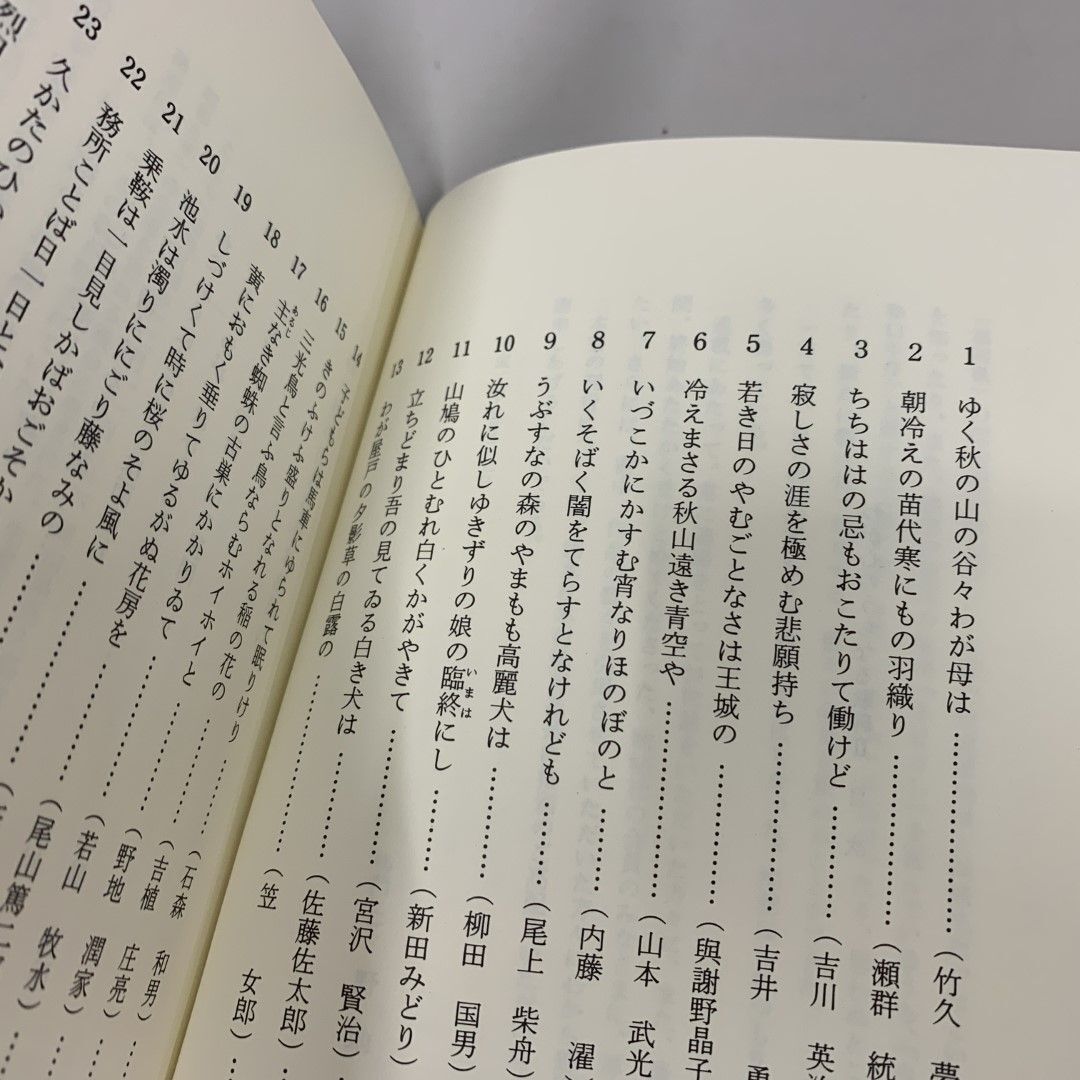 1 ゆく秋の山の谷々わが母は……………(竹久 夢
2 朝冷えの苗代寒にもの羽織り……………(瀬群 統
3 ちちははの忌もおこたりて働けど……………(吉川 英治
4 寂しさの涯を極めむ悲願持ち……………(吉井 勇
5 若き日のやむごとなさは王城の……………(與謝野晶子
6 冷えまさる秋山遠き青空や……………(山本 武光
7 いづこかにかすむ宵なりほのぼのと……………(内藤 濯)
8 いくそばく闇をてらすとなけれども……………(尾上 柴舟)
9 うぶすなの森のやまもも高麗犬は……………(柳田 国男)
10 汝れに似しゆきずりの娘の臨終にし……………(新田みどり)
いまは
11 山鳩のひとむれ白くかがやきて……………(宮沢 賢治)
12 立ちどまり吾の見てゐる白き犬は……………(佐藤佐太郎)
13 わが屋戸の夕影草の白露の……………(笠 女郎)
14 子どもらは馬車にゆられて眠りけり……………(石森 和男)
15 きのふけふ盛りとなれる稲の花の……………(吉植 庄亮)
16 三光鳥と言ふ鳥ならむホイホイと……………(野地 潤家)
17 主なき蜘蛛の古巣にかかりゐて……………(若山 牧水)
あるじ
18 黄におもく垂りてゆるがぬ花房を……………(尾山 篤二
19 しづけくて時に桜のそよ風に……………
20 池水は濁りににごり藤なみの……………
21 乗鞍は一目見しかばおごそか
22 務所ことば日一日と
23 久かたのひ
烈日